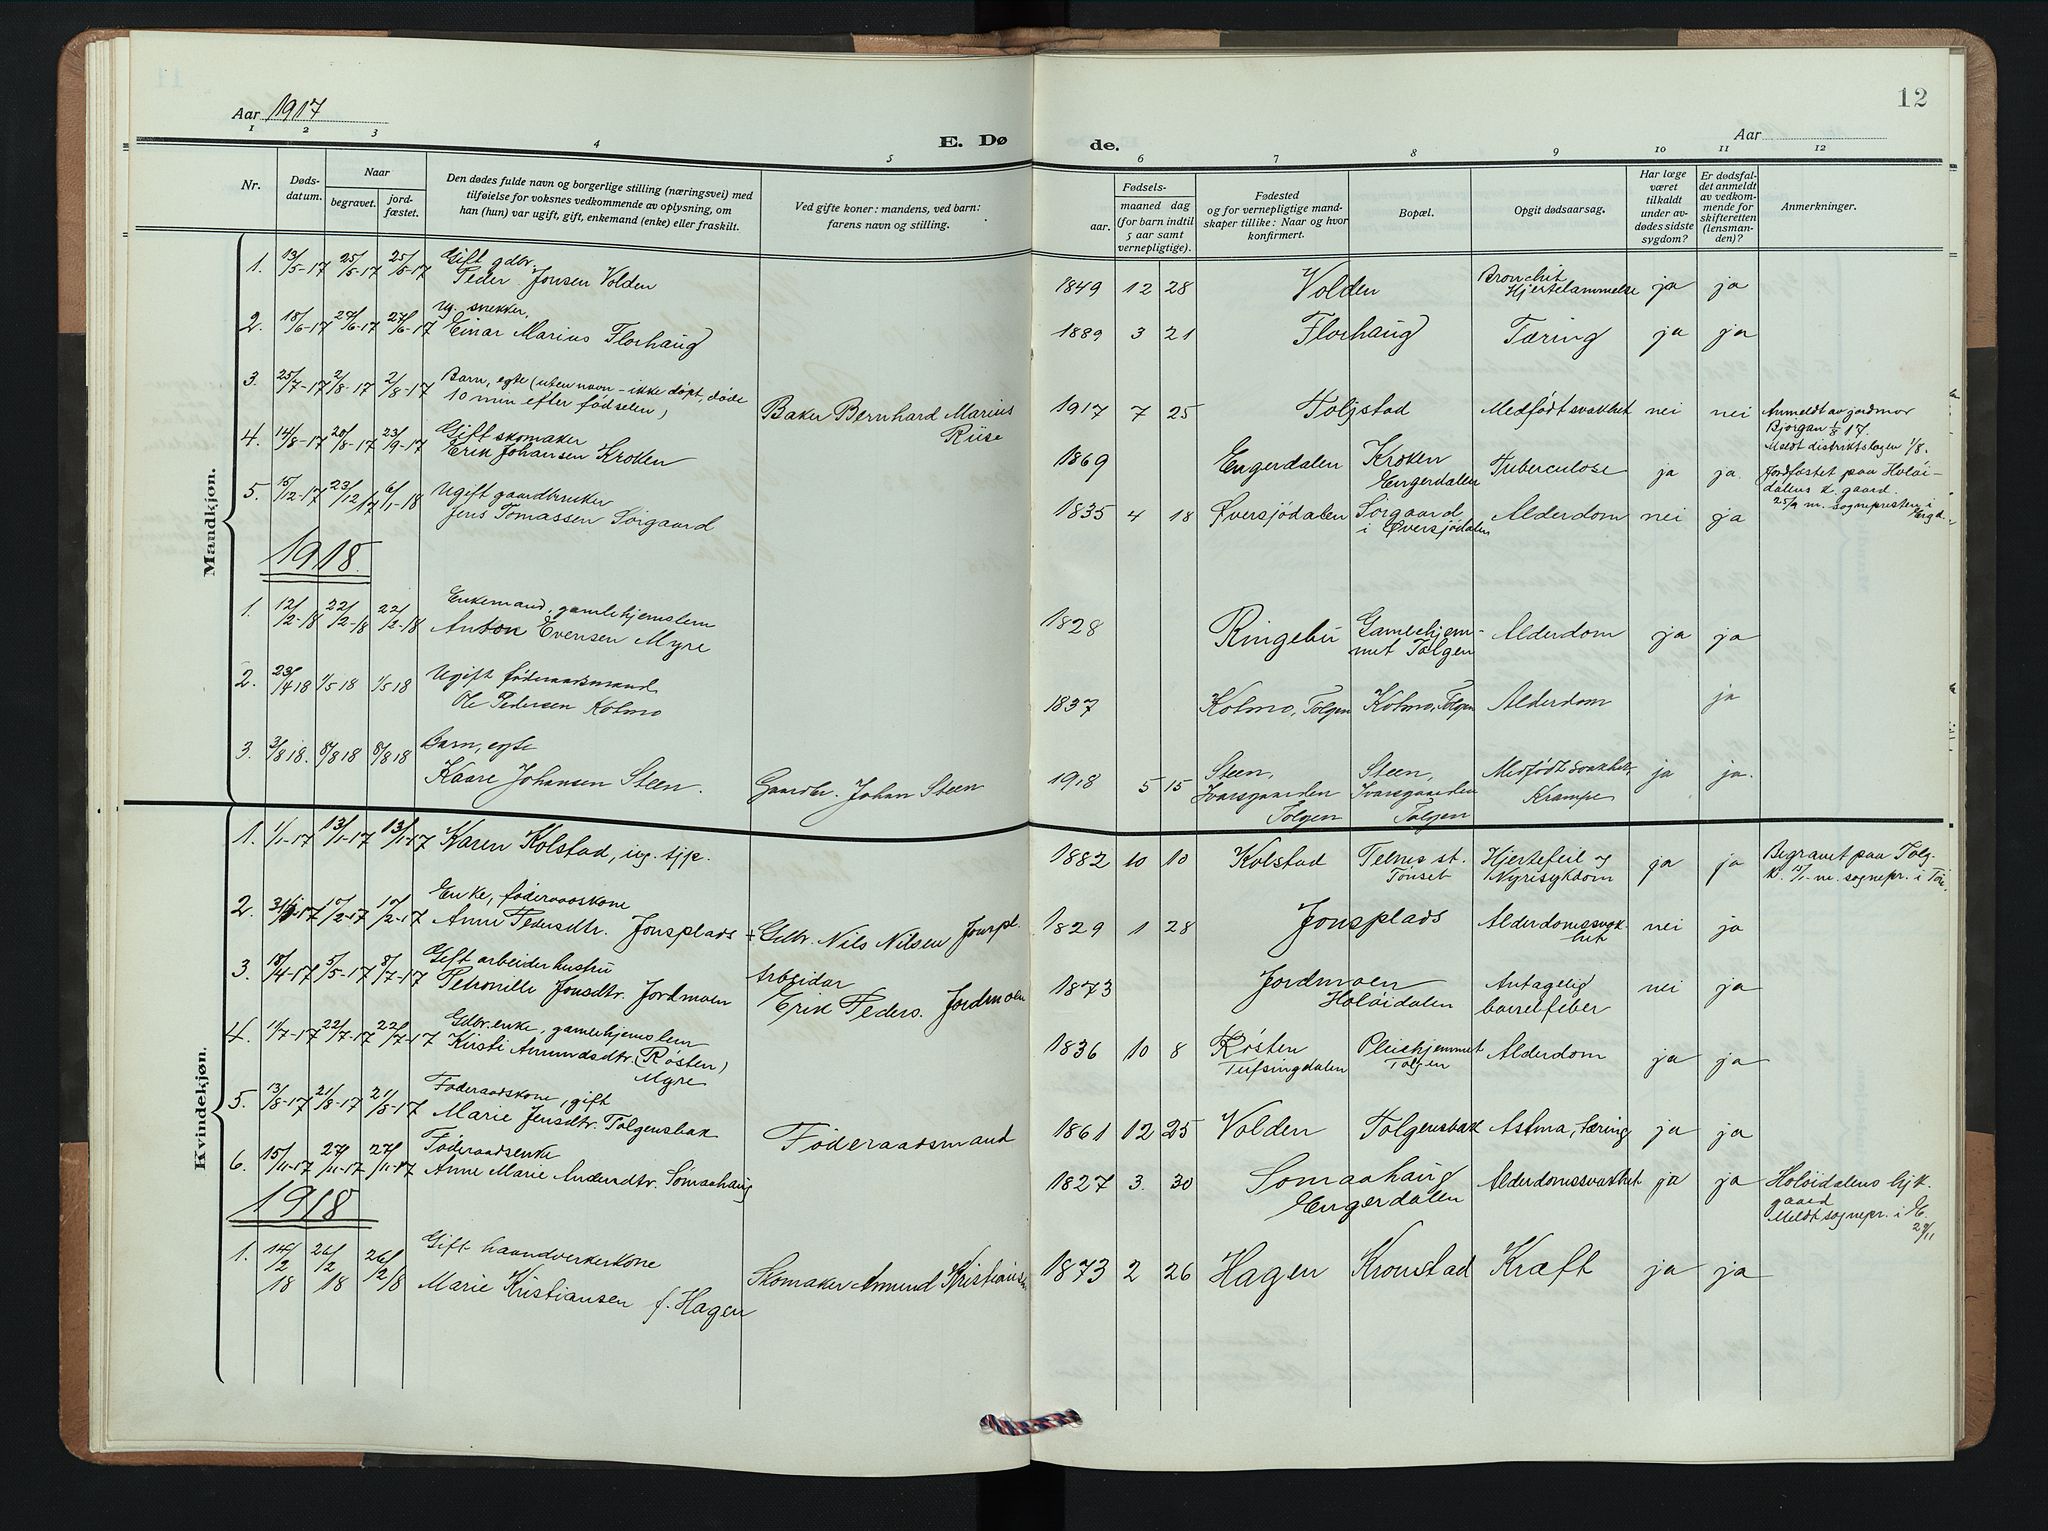 Aar 1917
12
Aar
E. Dø de.
1 2 3 4 5 6 7 8 9 10 11 12
Nr.
Døds-
datum.
Naar
begravet.
jord-
fæstet.
Den dødes fulde navn og borgerlige stilling (næringsvei) med
tilføielse for voksnes vedkommende av oplysning, om
han (hun) var ugift, gift, enkemand (enke) eller fraskilt.
Ved gifte koner: mandens, ved barn:
farens navn og stilling.
Fødsels-
aar.
maaned dag
(for barn indtil
5 aar samt
vernepligtige).
Fødested
og for vernepligtige mand-
skaper tillike: Naar og hvor
konfirmert.
Bopæl.
Opgit dødsaarsag.
Har læge
været
tilkaldt
under av-
dødes sidste
sygdom?
Er dødsfal-
det anmeldt
av vedkom-
mende for
skifteretten
(lensman-
den)?
Anmerkninger.
Mandkjøn.
1. 13/5-17 25/5-17 25/5-17 Gift gdbr.
Peder Jonsen Volden
1849 12 28 Volden Bronchit
Hjertelammelse ja ja
2. 18/6-17 27/6-17 27/6-17 Ug. snekker,
Einar Marius Florhaug
1889 3 21 Florhaug Tæring ja ja
3. 25/7-17 2/8-17 2/8-17 Barn, egte (uten navn - ikke døpt, døde
10 min efter fødselen)
Baker Bernhard Marius
Riise
1917 7 25 Tolgstad Medfødt svakhet nei nei Anmeldt av jordmor
Bjorgan 1/8 17.
Meldt distriktslægen 1/8.
4. 14/8-17 20/8-17 23/9-17 Gift skomaker
Erik Johansen Kroken
1869 Engerdalen Kroken
Engerdalen Tuberculose ja ja. Jordfæstet paa Holøi-
dalens k. gaard.
25/9 m. sognepresten i
Engd.
5. 15/12-17 23/12 17 6/1-18 Ugift gaardbruker
Jens Tomassen Sørgaard
1835 4 18 Øversjødalen Sørgaard
i Øversjødalen Alderdom nei ja
1918
1. 12/2-18 22/2-18 22/2-18 Enkemand, gamlehjemslem
Anton Evensen Myre
1828 Ringebu Gamlehjem-
met Tolgen Alderdom ja ja
2. 23/4 18 1/5 18 1/5 18 Ugift føderaadsmand
Ole Pedersen Kolmo
1837 Kolmo, Tolgen Kolmo, Tolgen Alderdom ja
3. 3/8 18. 8/8 18 8/8 18 Barn, egte
Kaare Johansen Steen.
Gaardbr. Johan Steen
1918 5 15 Steen,
Ivarsgaarden
Tolgen Steen,
Ivarsgaarden
Tolgen Medfødt svakhet,
Krampe ja ja.
Kvindekjøn.
1. 1/1-17 13/1-17 13/1-17 Karen Kolstad, ug. tjp.
1882 10 10 Kolstad Telnes st.
Tønset Hjertefeil og
Nyresykdom ja ja Begravet paa Tolg.
k. 13/1- m. sognepr. i Tøn.
2. 31/1-17 10/2-17 10/2-17 Enke, føderaadskone
Anne Pedersdtr. Jonsplads
+ Gdbr. Nils Nilsen Jonspl.
1829 1 28 Jonsplads Alderdomssvak-
het nei ja
3. 18/4-17 5/5-17 8/7-17 Gift arbeiderhustru
Petronille Jonsdtr. Jordmoen
Arbeider
Erik Peders. Jordmoen
1873 Jordmoen
Holøidalen Antagelig
barselfeber nei ja
4. 11/7-17 22/7-17 22/7-17 Gdbr.enke, gamlehjemslem
Kirsti Amundsdtr. (Røsten)
Myre
1836 10 8 Røsten
Tufsingdalen Pleiehjemmet
Tolgen Alderdom ja ja
5. 13/8-17 21/8-17 21/8-17 Føderaadskone, gift
Marie Jensdtr. Tolgensbak
Føderaadsmand
1861 12 25 Volden Tolgensbak Astma, tæring ja ja
6. 15/11-17 27/11-17 27/11-17 Føderaadsenke
Anne Marie Andersdtr. Sømaahaug
1827 3. 30 Sømaahaug
Engerdalen Alderdomssvakhet ja ja Holøidalens kjk.
gaard
Meldt sognepr. i E.
29/11
1918
1. 14/2 18 26/2 18 26/2 18 Gift haandverkerkone
Marie Kristiansen f. Hagen
Skomaker Amund Kristiansen
1873 2 26 Hagen Kronstad Kræft ja ja